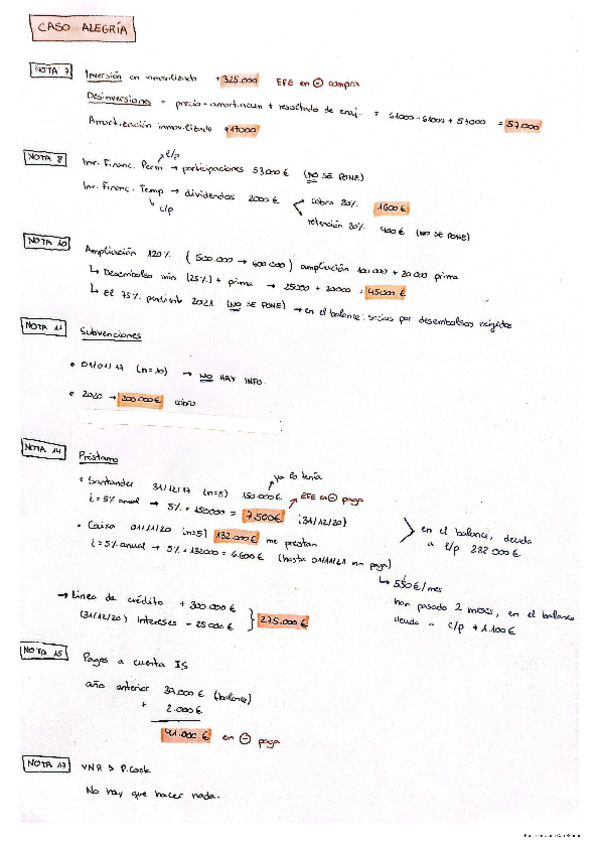 CASO ALEGRÍA
NOTA 7 Inversión en inmovilizado +325.000 EFE en ⊖ compra
Desinversiones = precio - amort. acum + resultado de enaj. = 61000 - 61000 + 57000 = 57.000
Amortización inmovilizado +17000
NOTA 8 l/p
Inv. Financ. Perm → participaciones 53.000 € (NO SE PONE)
Inv. Financ. Temp → dividendos 2000 € cobra 80% 1600 €
c/p retención 20% 400 € (NO SE PONE)
NOTA 10 Ampliación 120% (500.000 → 600.000) ampliación 100.000 + 20.000 prima
↳ Desembolso min (25%) + prima → 25000 + 20000 = 45000 €
↳ El 75% pendiente 2021 (NO SE PONE) → en el balance: socios por desembolsos exigidos
NOTA 11 Subvenciones
• 01/01/17 (n=10) → NO HAY INFO.
• 2020 → 200.000 € cobro
NOTA 14 Préstamo
ya lo tenía
• Santander 31/12/17 (n=5) 150.000 €
i = 5% anual → 5% · 150000 = 7.500 € (31/12/20) EFE en ⊖ paga
• Caixa 01/11/20 (n=5) 132.000 € me prestan
i = 5% anual → 5% · 132000 = 6.600 € (hasta 01/11/21 no paga)
en el balance, deuda
a l/p 282 000 €
↳ 550 €/mes
han pasado 2 meses, en el balance
deuda a c/p + 1.100 €
→ Línea de crédito + 300.000 €
(31/12/20) Intereses - 25 000 € 275.000 €
NOTA 15 Pagos a cuenta IS
año anterior 39.000 € (balance)
+ 2.000 €
41.000 € en ⊖ paga
NOTA 17 VNR > P.Coste
No hay que hacer nada.